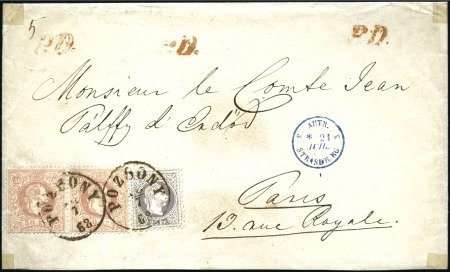 5
P.D. P.D. P.D.
Monsieur le Comte Jean
Pálffy d'Erdöd
AUTR.
3 * 21 3
JUIL.
STRASBOURG
POZSONY POZSONY
Paris
13. rue Royale.